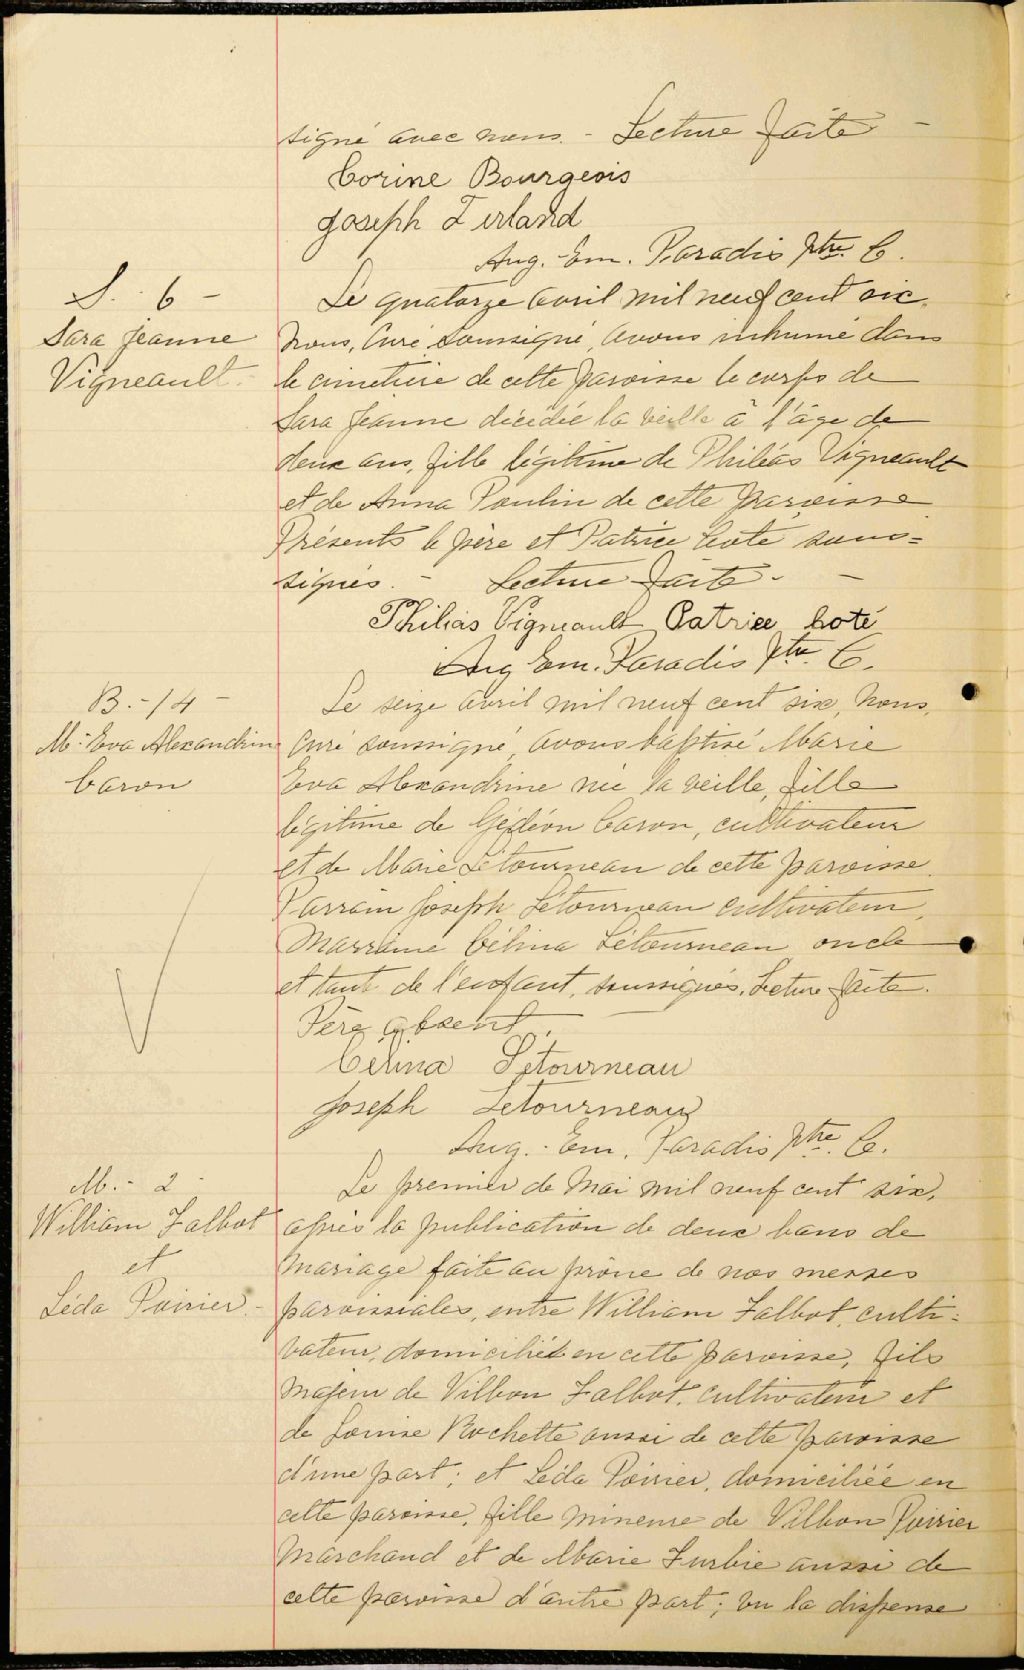 signé avec nous. - Lecture faite -
Corine Bourgeois
Joseph Ferland
Aug. Em. Paradis Ptre. C.
S. 6 -
Sara Jeanne
Vigneault. -
Le quatorze avril mil neuf cent six,
nous, Curé soussigné, avons inhumé dans
le cimetière de cette paroisse le corps de
Sara Jeanne décédée la veille à l'âge de
deux ans, fille légitime de Philéas Vigneault
et de Anna Poulin de cette paroisse
Présents le père et Patrice Coté sous=
signés. - Lecture faite. -
Philias Vigneault Patrice Coté
Aug Em. Paradis Ptre C.
B. - 14 -
M. Eva Alexandrine
Caron
Le seize avril mil neuf cent six, Nous,
Curé soussigné, avons baptisé Marie
Eva Alexandrine née la veille, fille
légitime de Gédéon Caron, cultivateur
et de Marie Létourneau de cette paroisse.
Parrain Joseph Létourneau cultivateur,
Marraine Célina Létourneau oncle
et tante de l'enfant, soussignés. Lecture faite.
Père absent.
Célina Létourneau
Joseph Letourneau
Aug. - Em. Paradis Ptre. C.
M. - 2 -
William Talbot
et
Léda Poirier. -
Le premier de Mai mil neuf cent six,
après la publication de deux bans de
mariage faite au prône de nos messes
paroissiales, entre William Talbot, culti=
vateur, domicilié en cette paroisse, fils
majeur de Vilbon Talbot, cultivateur et
de Louise Rochette aussi de cette paroisse
d'une part; et Léda Poirier, domiciliée en
cette paroisse, fille mineure de Vilbon Poirier
Marchand et de Marie Turbie aussi de
cette paroisse d'autre part; vu la dispense